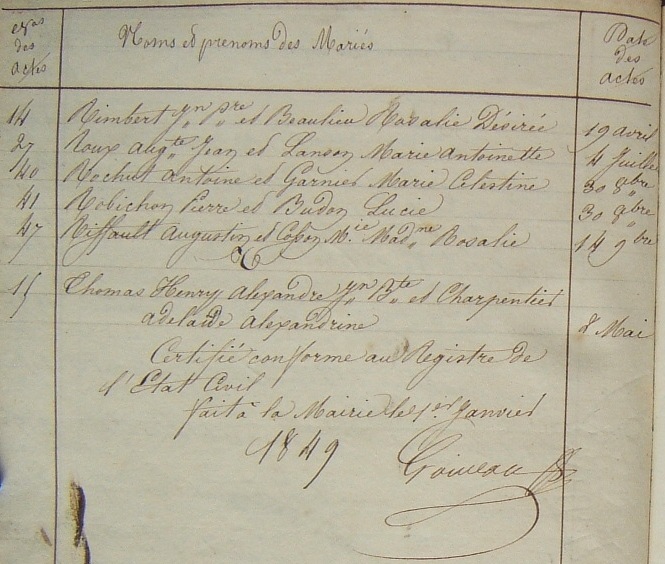 Nos
des
actes
Noms et prenoms des Mariés
Date
des
actes
14 Rimbert Jn Pre et Beaulieu Rosalie Désirée 19 avril
27 Roux Augte Jean et Lanson Marie Antoinette 4 Juillet
40 Rochut Antoine et Garnier Marie Celestine 30 9bre
41 Robichon Pierre et Budon Lucie 30 9bre
47 Riffault Augustin et Mie Madne Rosalie 14 9bre
T
15 Thomas Henry Alexandre Jn Bte et Charpentier
adelaide alexandrine 8 Mai
Certifié conforme au Registre de
l'Etat Civil
fait à la Mairie le 1er Janvier
1849